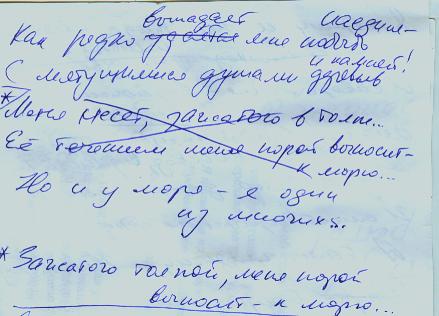 выпадает наедине-
Как редко удаётся мне побыть
и камней!
С мятущимися душами деревьев
*Меня несёт, зажатого в толпе...
Её течением меня порой выносит -
к морю...
Но и у моря - я один
из многих...
* Зажатого толпой, меня порой
выносит - к морю...